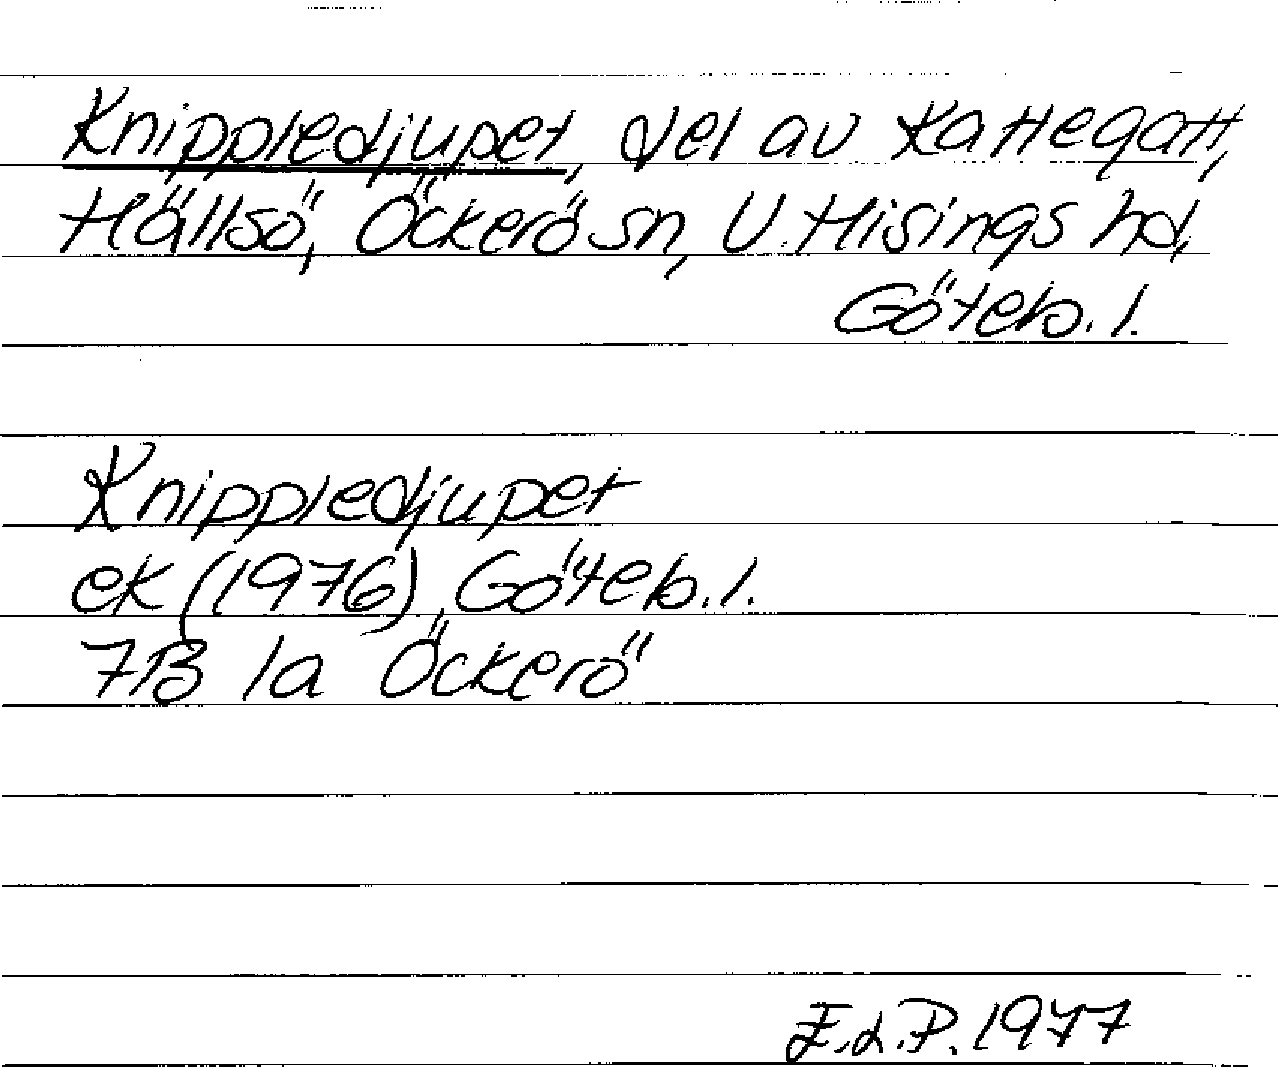 Knippledjupet, del av Kattegatt,
Hällsö, Öckerö sn, V. Hisings hd,
Göteb. l.
Knippledjupet
ek (1976), Göteb. l.
7B 1a Öckerö
E.d.P. 1977